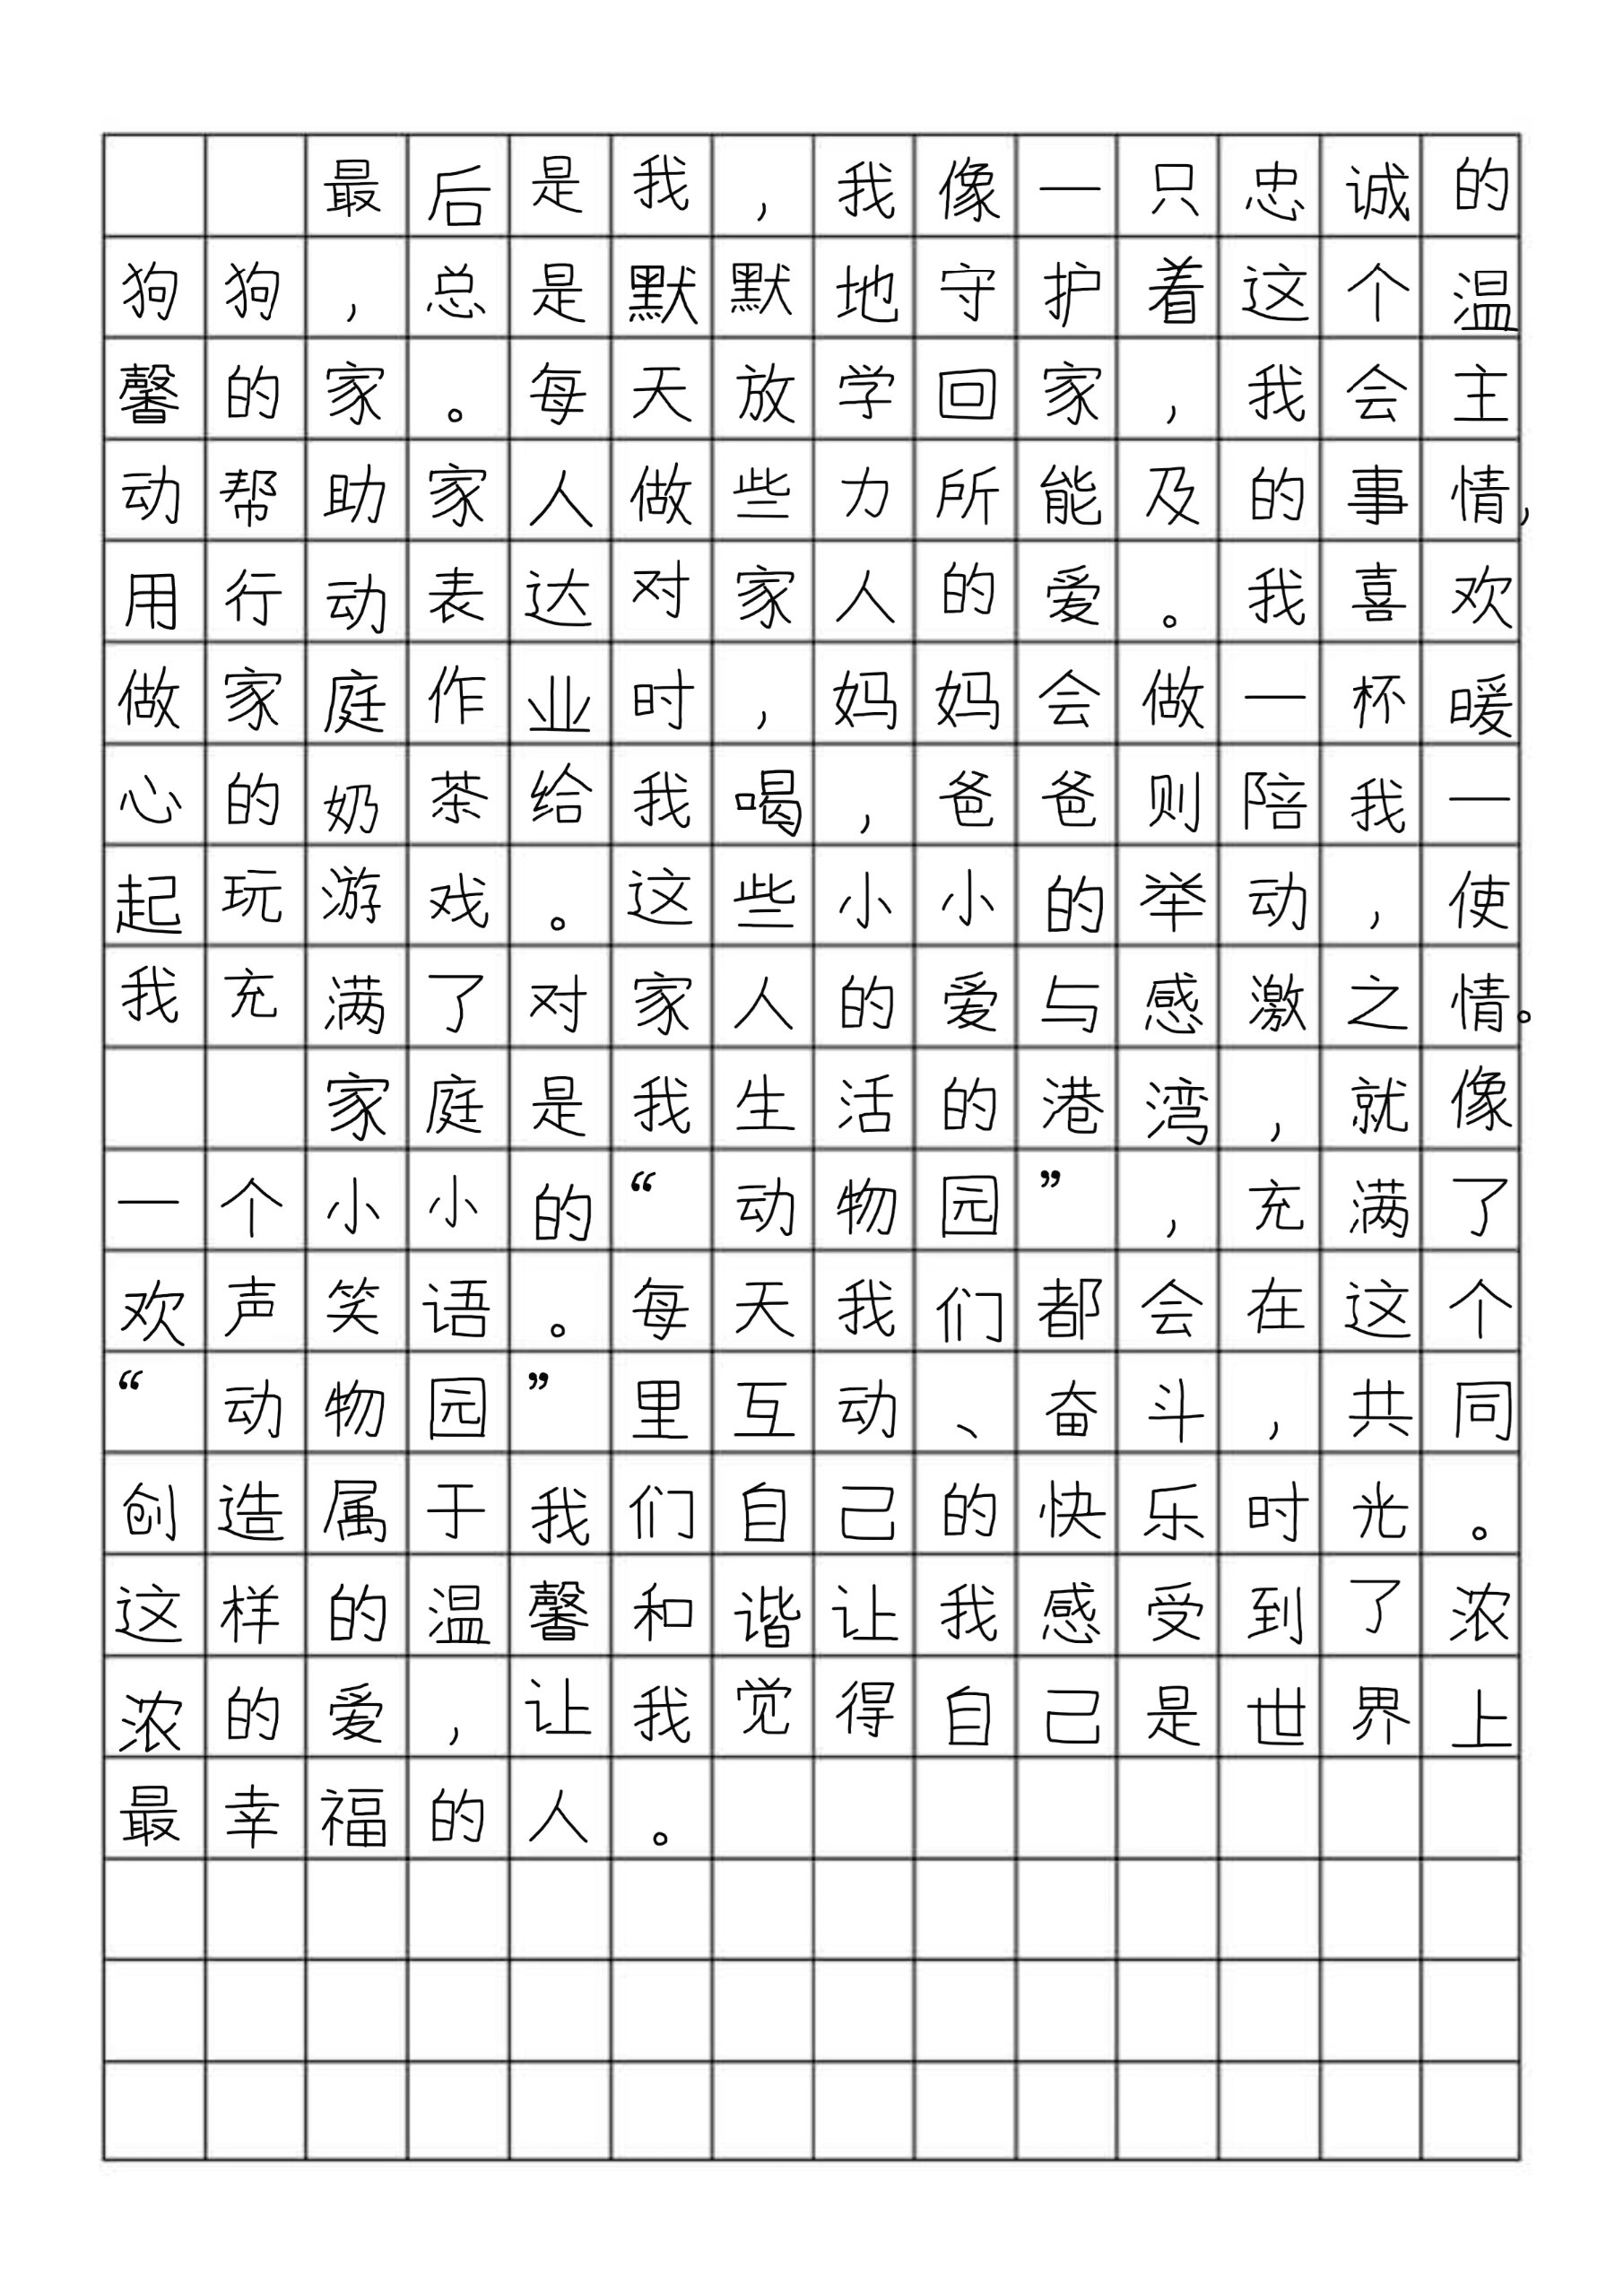 最后是我，我像一只忠诚的
狗狗，总是默默地守护着这个温
馨的家。每天放学回家，我会主
动帮助家人做些力所能及的事情，
用行动表达对家人的爱。我喜欢
做家庭作业时，妈妈会做一杯暖
心的奶茶给我喝，爸爸则陪我一
起玩游戏。这些小小的举动，使
我充满了对家人的爱与感激之情。
家庭是我生活的港湾，就像
一个小小的“动物园”，充满了
欢声笑语。每天我们都会在这个
“动物园”里互动、奋斗，共同
创造属于我们自己的快乐时光。
这样的温馨和谐让我感受到了浓
浓的爱，让我觉得自己是世界上
最幸福的人。